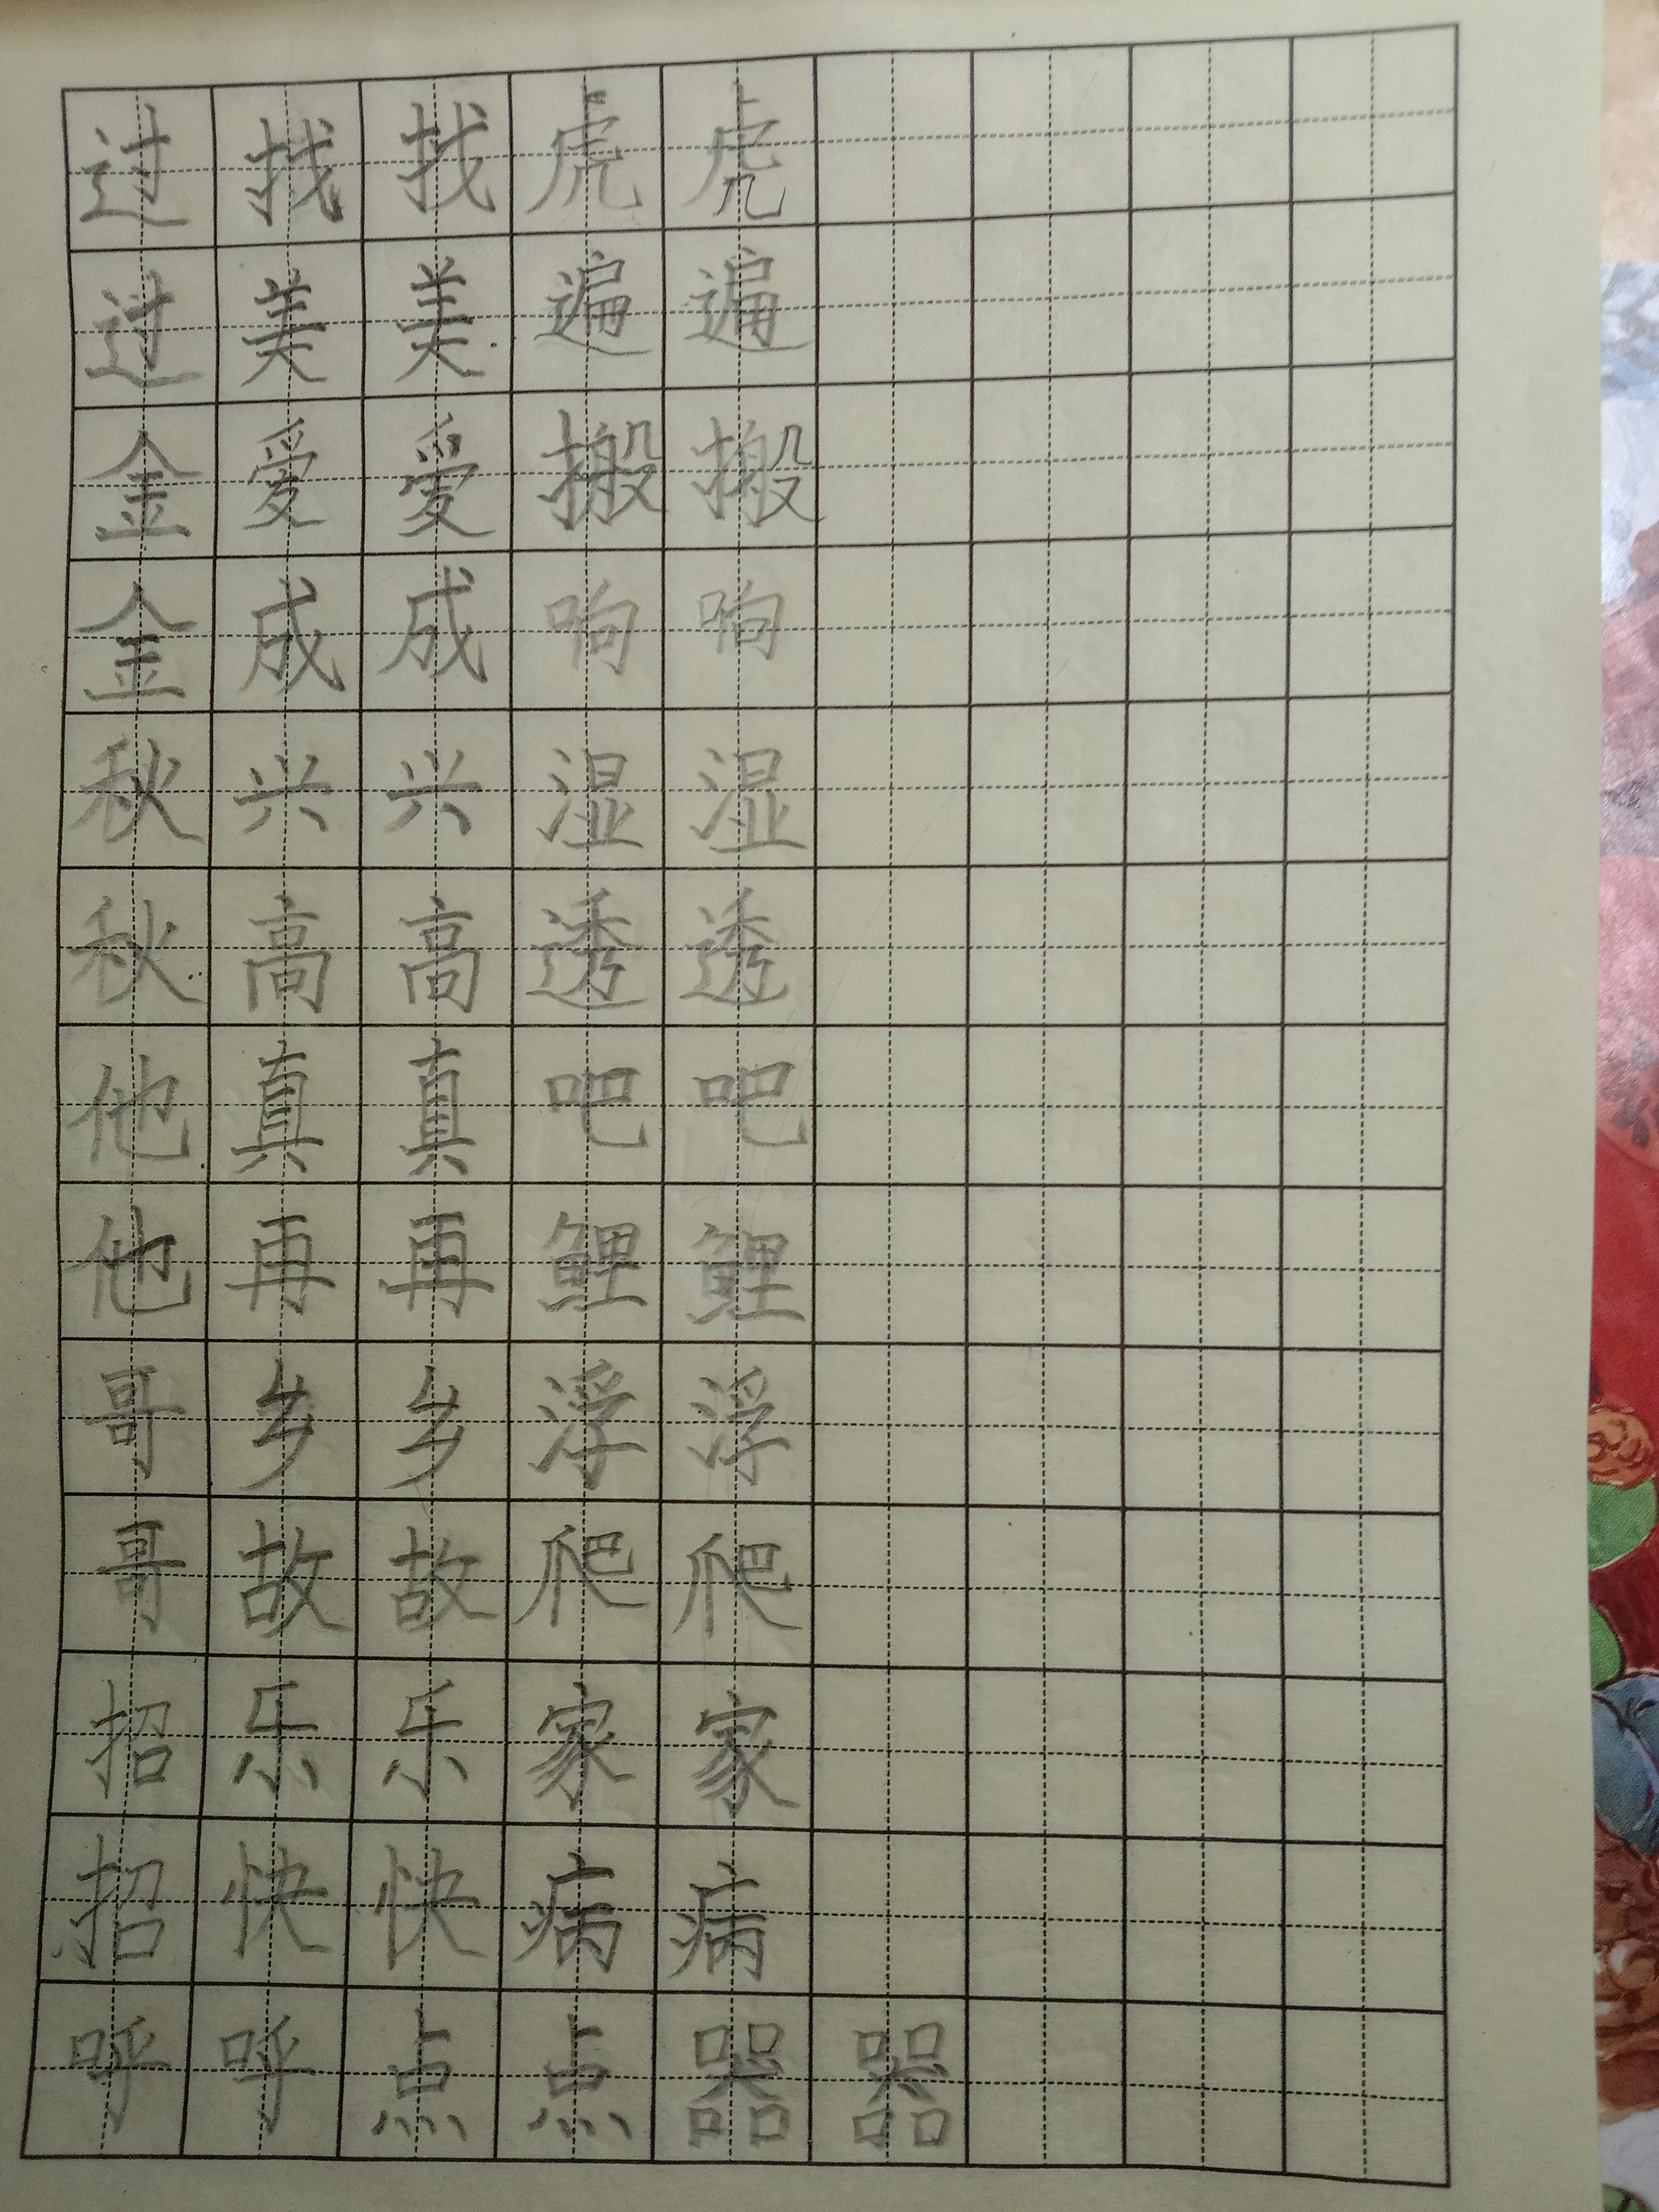 过找找虎虎
过美美遍遍
金爱爱搬搬
金成成响响
秋兴兴湿湿
秋高高透透
他真真吧吧
他再再鲤鲤
哥乡乡浮浮
哥故故爬爬
招乐乐家家
招快快病病
呼呼点点器器